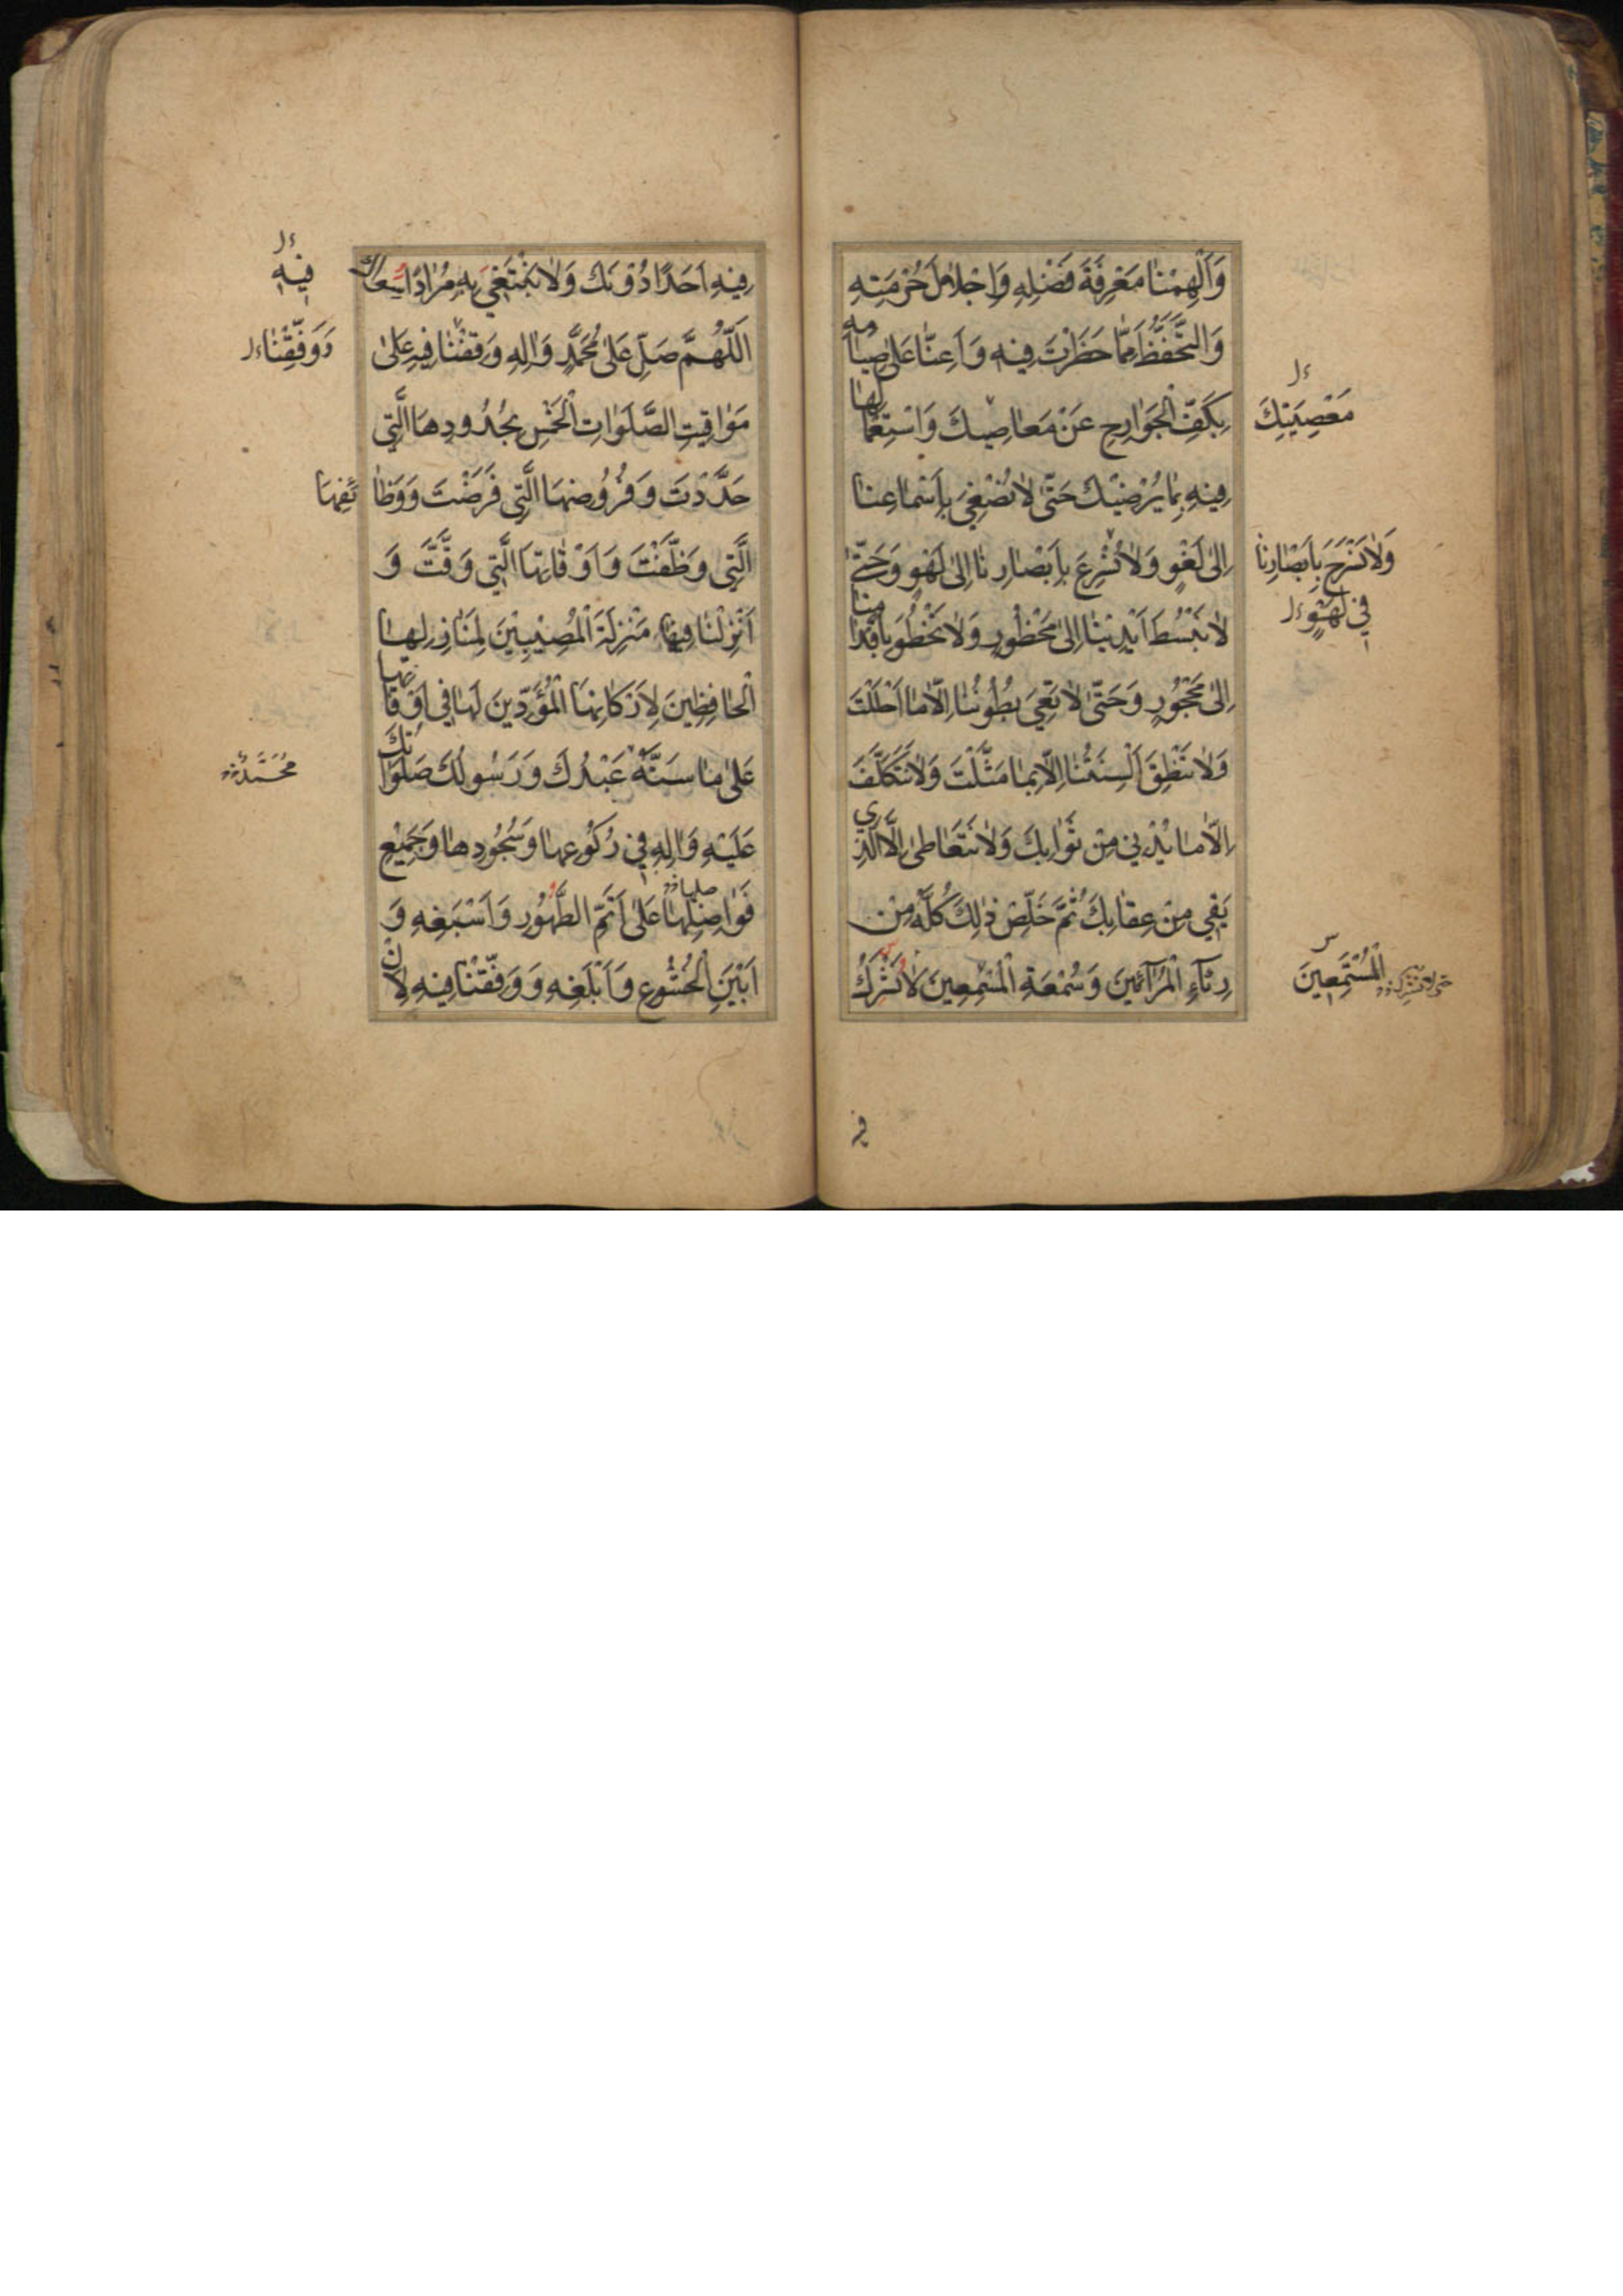 وَاَلْهِمْنٰا مَعْرِفَةَ فَضْلِهِ وَاِجْلاٰلَ حُرْمَتِهِ
وَالتَّحَفُّظَ مِمّٰا حَظَرْتَ فِيهِ وَاَعِنّٰا عَلىٰ صِيٰامِهِ
بِكَفِّ الْجَوٰارِحِ عَنْ مَعٰاصِيكَ وَاسْتِعْمٰالِهٰا
مَعْصِيَتِكَ
فِيهِ بِمٰا يُرْضِيْكَ حَتّٰى لاٰ نُصْغِيَ بِاَسْمٰاعِنٰا
اِلىٰ لَغْوٍ وَلاٰ نُسْرِعَ بِاَبْصٰارِنٰا اِلىٰ لَهْوٍ وَحَتّٰى
وَلاٰ نَسْرَحَ بِاَبْصٰارِنٰا
فِي لَهْوٍ
لاٰ نَبْسُطَ اَيْدِيَنٰا اِلىٰ مَحْظُورٍ وَلاٰ نَخْطُوَ بِاَقْدٰامِنٰا
اِلىٰ مَحْجُورٍ وَحَتّٰى لاٰ تَعِيَ بُطُونُنٰا اِلاّٰ مٰا اَحْلَلْتَ
وَلاٰ تَنْطِقَ اَلْسِنَتُنٰا اِلاّٰ بِمٰا مَثَّلْتَ وَلاٰ نَتَكَلَّفَ
اِلاّٰ مٰا يُدْنِي مِنْ ثَوٰابِكَ وَلاٰ نَتَعٰاطىٰ اِلاَّ الَّذِي
يَقِي مِنْ عِقٰابِكَ ثُمَّ خَلِّصْ ذٰلِكَ كُلَّهُ مِنْ
رِئٰآءِ الْمُرٰآئِينَ وَسُمْعَةِ الْمُسْمِعِينَ لاٰ نُشْرِكُ
الْمُسْتَمِعِينَ
فيه
فِيهِ اَحَدًا دُوْنَكَ وَلاٰ نَبْتَغِي بِهِ مُرٰادًا سِوٰاكَ
فِيهِ
اَللّٰهُمَّ صَلِّ عَلىٰ مُحَمَّدٍ وَاٰلِهِ وَقِفْنٰا فِيهِ عَلىٰ
وَوَفِّقْنٰا
مَوٰاقِيتِ الصَّلَوٰاتِ الْخَمْسِ بِحُدُودِهَا الَّتِي
حَدَّدْتَ وَفُرُوضِهَا الَّتِي فَرَضْتَ وَوَظٰائِفِهَا
الَّتِي وَظَّفْتَ وَاَوْقٰاتِهَا الَّتِي وَقَّتَّ وَ
اَنْزِلْنٰا فِيهٰا مَنْزِلَةَ الْمُصِيْبِيْنَ لِمَنٰازِلِهَا
الْحٰافِظِينَ لِاَرْكٰانِهَا الْمُؤَدِّينَ لَهٰا فِي اَوْقٰاتِهٰا
عَلىٰ مٰا سَنَّهُ عَبْدُكَ وَرَسُولُكَ صَلَوٰاتُكَ
مُحَمَّدٌ
عَلَيْهِ وَاٰلِهِ فِي رُكُوْعِهٰا وَسُجُودِهٰا وَجَمِيْعِ
فَوٰاضِلِهٰا عَلىٰ اَتَمِّ الطَّهُوْرِ وَاَسْبَغِهِ وَ
اَبْيَنِ الْخُشُوعِ وَاَبْلَغِهِ وَوَفِّقْنٰا فِيهِ لِاَنْ